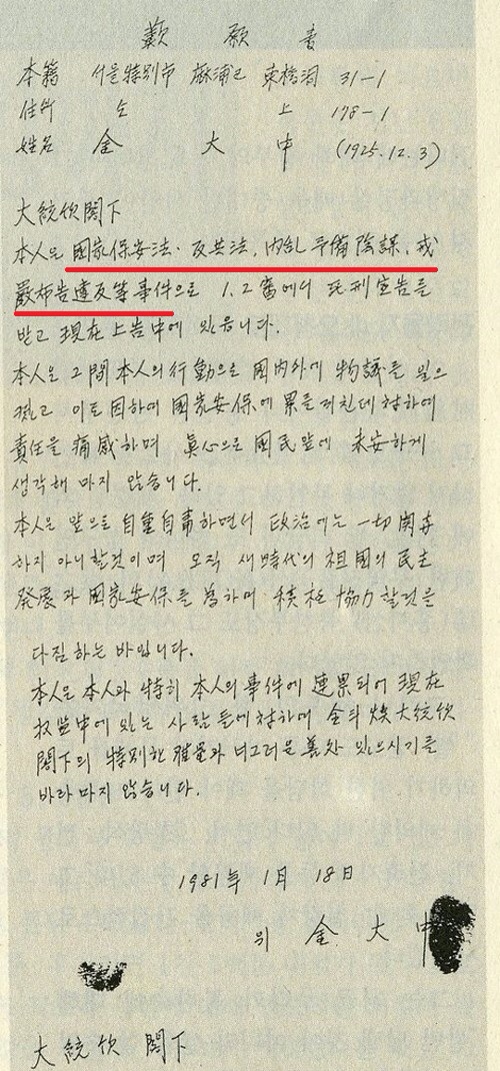 歎願書
本籍 서울特別市 麻浦區 東橋洞 31-1
住所 仝 上 178-1
姓名 金 大 中 (1925.12.3)
大統領閣下
本人은 國家保安法·反共法, 內乱予備陰謀, 戒
嚴布告違反等事件으로 1.2審에서 死刑宣告를
받고 現在上告中에 있읍니다.
本人은 그間本人의 行動으로 國內外에 物議를 일으
켰고 이로因하여 國家安保에 累를 끼친데 対하여
責任을 痛感하며 眞心으로 國民앞에 未安하게
생각해 마지 않습니다.
本人은 앞으로 自重自肅하면서 政治에는 一切関与
하지 아니할것이며 오직 새時代의 祖國의 民主
發展과 國家安保를 為하여 積极協力할것을
다짐하는바입니다.
本人은 本人과 特히 本人의 事件에 連累되어 現在
収監中에 있는 사람들에 対하여 全斗煥大統領
閣下의 特別한 雅量과 너그러운 善処 있으시기를
바라마지 않습니다.
1981年 1月 18日
위 金 大 中
大統領 閣下